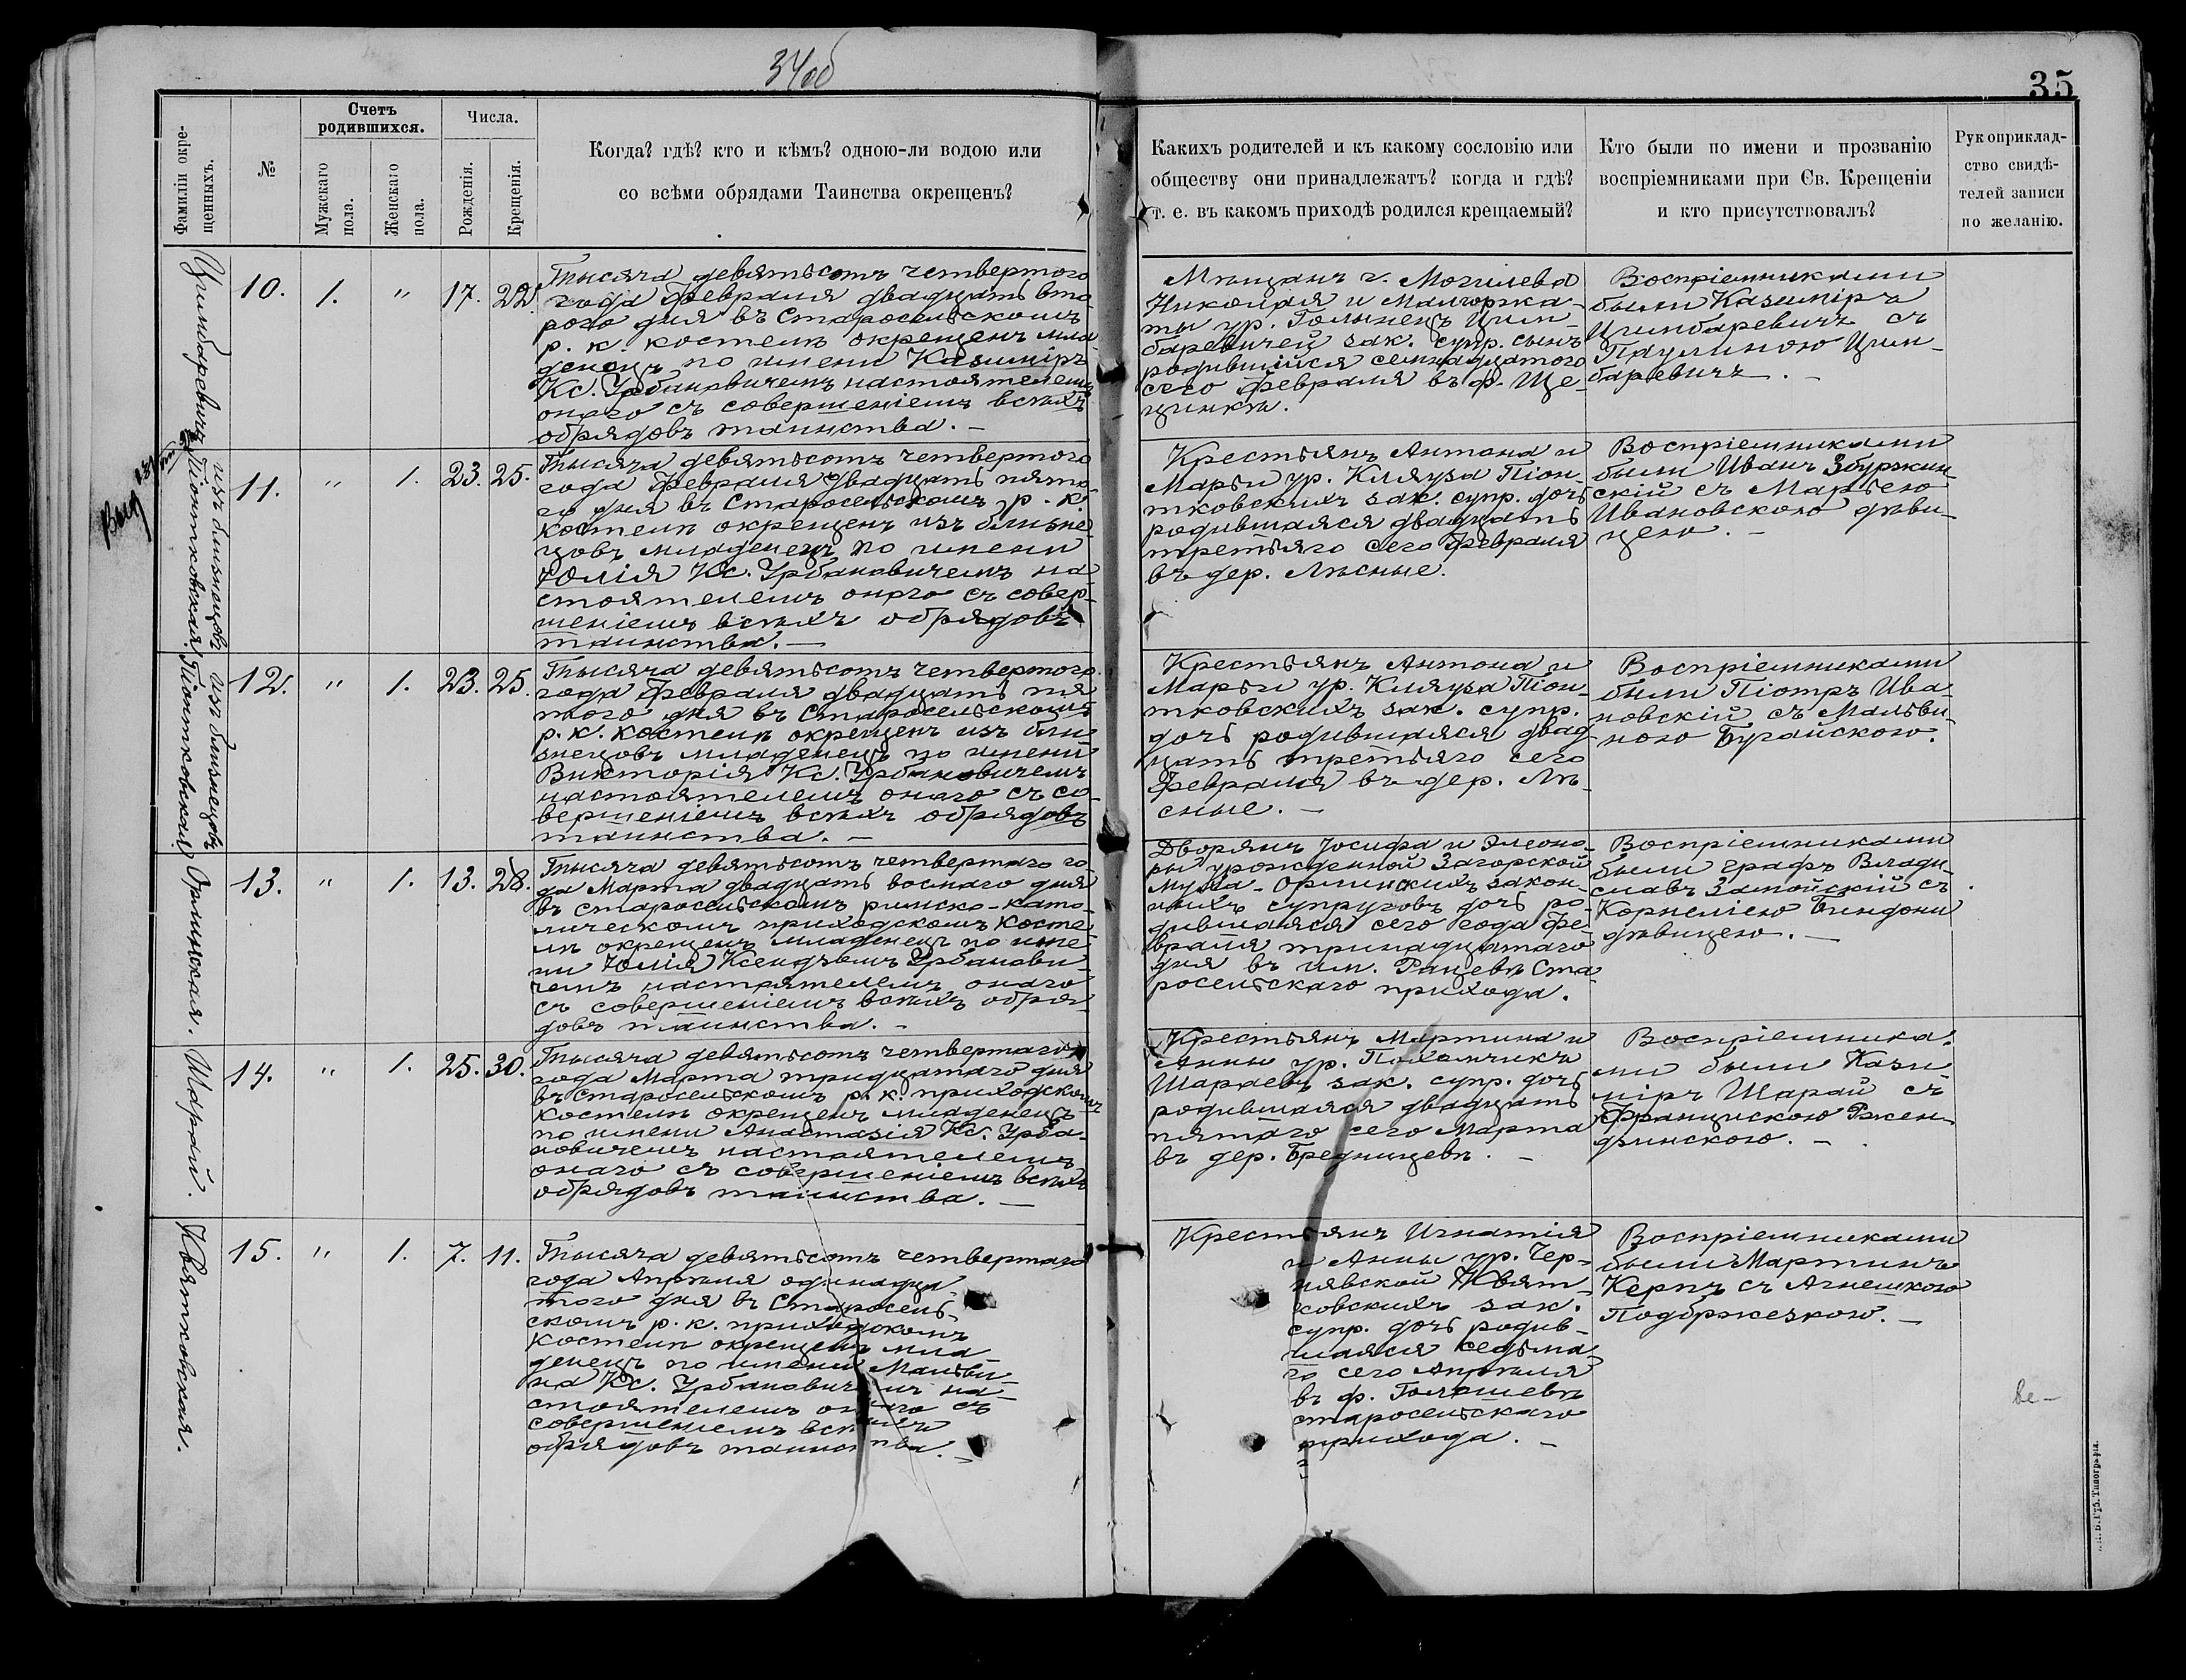 34об
35
Фамиліи окре-
щенныхъ.
№
Счетъ
родившихся.
Мужскаго
пола.
Женскаго
пола.
Числа.
Рожденія.
Крещенія.
Когда? гдѣ? кто и кѣмъ? одною-ли водою или
со всѣми обрядами Таинства окрещенъ?
Какихъ родителей и къ какому сословію или
обществу они принадлежатъ? когда и гдѣ?
т. е. въ какомъ приходѣ родился крещаемый?
Кто были по имени и прозванію
воспріемниками при Св. Крещеніи
и кто присутствовалъ?
Рукоприклад-
ство свидѣ-
телей записи
по желанію.
Цимбаревичъ
10. 1. " 17. 22.
Тысяча девятьсотъ четвертого
года Февраля двадцать вто-
рого дня въ Старосельскомъ
р. к. костелѣ окрещенъ мла-
денецъ по имени Казимиръ
Кс. Урбановичемъ настоятелемъ
онаго съ совершеніемъ всѣхъ
обрядовъ таинства. –
Мѣщанъ г. Могилева
Николая и Малгоржа-
ты ур. Голынецъ Цим-
баревичей зак. супр. сынъ
родившійся семнадцатого
сего Февраля въ ф. Ще-
цинки.
Воспріемниками
были Казимиръ
Цимбаревичъ съ
Паулиною Цим-
баревичъ. –
изъ близнецовъ
Піонтковская.
11. " 1. 23. 25.
Тысяча девятьсотъ четвертого
года Февраля двадцать пято-
го дня въ Старосельскомъ р. к.
костелѣ окрещенъ изъ близне-
цовъ младенецъ по имени
Юлія Кс. Урбановичемъ на-
стоятелемъ онаго съ совер-
шеніемъ всѣхъ обрядовъ
таинства. –
Крестьянъ Антона и
Марьи ур. Кляуза Піон-
тковскихъ зак. супр. дочь
родившаяся двадцать
третьяго сего Февраля
въ дер. Лѣсные.
Воспріемниками
были Иванъ Збуржин-
скій съ Марьею
Ивановскою дѣви-
цею. –
изъ близнецовъ
Піонтковская
12. " 1. 23. 25.
Тысяча девятьсотъ четвертого
года Февраля двадцать пя-
того дня въ Старосельскомъ
р. к. костелѣ окрещенъ изъ бли-
знецовъ младенецъ по имени
Викторія Кс. Урбановичемъ
настоятелемъ онаго съ со-
вершеніемъ всѣхъ обрядовъ
таинства. –
Крестьянъ Антона и
Марьи ур. Кляуза Піон-
тковскихъ зак. супр.
дочь родившаяся двад-
цать третьяго сего
Февраля въ дер. Лѣ-
сные. –
Воспріемниками
были Піотръ Ива-
новскій съ Мальви-
ною Бугайскою.
Орлинская.
13. " 1. 13. 28.
Тысяча девятьсотъ четвертаго го-
да Марта двадцать восмаго дня
въ старосельскомъ римско-като-
лическомъ приходскомъ косте-
лѣ окрещенъ младенецъ по име-
ни Юлія Ксендзомъ Урбанови-
чемъ настоятелемъ онаго
съ совершеніемъ всѣхъ обря-
довъ таинства. –
Дворянъ Іосифа и Элеоно-
ры урожденной Загорской
Муха-Орлинскихъ закон-
ныхъ супруговъ дочь ро-
дившаяся сего года Фе-
враля тринадцатаго
дня въ им. Ранцевѣ Ста-
росельскаго прихода.
Воспріемниками
были графъ Влади-
славъ Замойскій съ
Корнеліею Биндони
дѣвицею. –
Шарай.
14. " 1. 25. 30.
Тысяча девятьсотъ четвертаго
года Марта тридцатаго дня
въ старосельскомъ р. к. приходскомъ
костелѣ окрещенъ младенецъ
по имени Анастазія Кс. Урба-
новичемъ настоятелемъ
онаго съ совершеніемъ всѣхъ
обрядовъ таинства. –
Крестьянъ Мартина и
Анны ур. Полемчикъ
Шараевъ зак. супр. дочь
родившаяся двадцать
пятаго сего Марта
въ дер. Бредницевѣ. –
Воспріемника-
ми были Кази-
міръ Шарай съ
Францискою Ржен-
дзинскою. –
Квятковская.
15. " 1. 7. 11.
Тысяча девятьсотъ четвертаго
года Апрѣля одинадца-
того дня въ Старосель-
скомъ р. к. приходскомъ
костелѣ окрещенъ мла-
денецъ по имени Мальви-
на Кс. Урбановичемъ на-
стоятелемъ онаго съ
совершеніемъ всѣхъ
обрядовъ таинства. –
Крестьянъ Игнатія
и Анны ур. Чер-
нявской Квят-
ковскихъ зак.
супр. дочь родив-
шаяся седьма-
го сего Апрѣля
въ ф. Голяшевѣ
старосельскаго
прихода. –
Воспріемниками
были Мартинъ
Керпъ съ Агнешкою
Подбржезкою. –
Губ. Типографія.